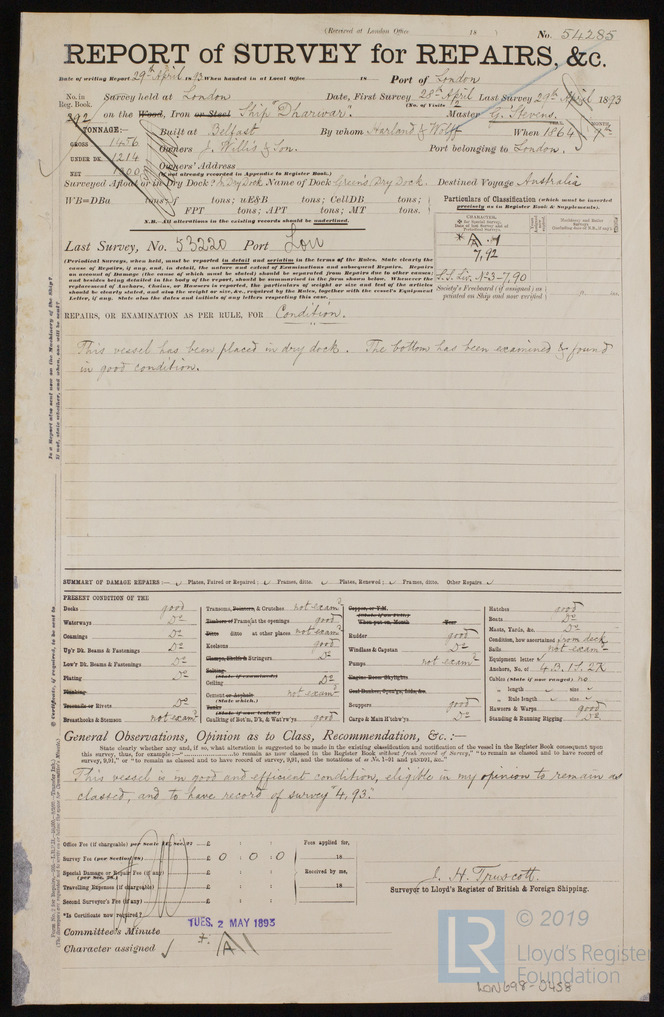 (Received at London Office 18 ) No. 54285
REPORT of SURVEY for REPAIRS, &c.
Date of writing Report 29th April 1893 When handed in at Local Office 18 Port of London
No. in Reg. Book. Survey held at London Date, First Survey 28th April Last Survey 29th April 1893
(No. of Visits 12
392 on the Wood, Iron or Steel Ship "Dharwar" Master G. Stevens.
TONNAGE:— Built at Belfast By whom Harland & Wolff When 1864 MONTH 7th
GROSS 1456 Owners J. Willis & Son. Port belonging to London.
UNDER DK. 1214 Owners' Address
NET 1300 (if not already recorded in Appendix to Register Book.)
Surveyed Afloat or in Dry Dock? In Dry Dock Name of Dock Green's Dry Dock. Destined Voyage Australia
WB=DBa tons; f tons; uE&B tons; CellDB tons;
FPT tons; APT tons; MT tons.
N.B.—All alterations in the existing records should be underlined.
Particulars of Classification (which must be inserted
precisely as in Register Book & Supplements).
CHARACTER.
A.1
7,92
Last Survey, No. 53220 Port Lon
S.S. Liv. No3-7,90
Society's Freeboard (if assigned) as
painted on Ship and now verified
(Periodical Surveys, when held, must be reported in detail and seriatim in the terms of the Rules. State clearly the
cause of Repairs, if any, and, in detail, the nature and extent of Examinations and subsequent Repairs. Repairs
on account of Damage (the cause of which must be stated) should be separated from Repairs due to other causes;
and besides being detailed in the body of the report, should be summarised in the form shown below. Whenever the
replacement of Anchors, Chains, or Hawsers is reported, the particulars of weight or size and test of the articles
should be clearly stated, and also the weight or size, &c., required by the Rules, together with the vessel's Equipment
Letter, if any. State also the dates and initials of any letters respecting this case.
REPAIRS, OR EXAMINATION AS PER RULE, FOR Condition.
This vessel has been placed in dry dock. The bottom has been examined & found
in good condition.
SUMMARY OF DAMAGE REPAIRS:— Plates, Faired or Repaired; Frames, ditto. Plates, Renewed; Frames, ditto. Other Repairs
PRESENT CONDITION OF THE
Decks good
Waterways Do
Coamings Do
Up'r Dk. Beams & Fastenings Do
Low'r Dk. Beams & Fastenings Do
Plating Do
Planking
Treenails or Rivets Do
Breasthooks & Stemson not examd
Transoms, Pointers, & Crutches not examd
Timbers of Frame at the openings good
Ditto ditto at other places not examd
Keelsons good
Clamps, Shelfs & Stringers Do
Salting
(State if examined)
Ceiling Do
Cement or Asphalt not examd
(State which.)
Tanks
(State if now tested.)
Caulking of Bot'm, D'k, & Wat'rw'ys good
Copper, or Y.M.
(State if on Felt.)
When put on, Month Year
Rudder good
Windlass & Capstan Do
Pumps not examd
Engine Room Skylights
Coal Bunker, Open'gs, Lids, &c.
Scuppers good
Cargo & Main H'tchw'ys Do
Hatches good
Boats Do
Masts, Yards, &c. Do
Condition, how ascertained from deck
Sails not examd
Equipment letter
Anchors, No. of 4 B. 1 S. 2 K
Cables (State if now ranged) no
" length size
" Rule length size
Hawsers & Warps good
Standing & Running Rigging Do
General Observations, Opinion as to Class, Recommendation, &c.:—
State clearly whether any, and if so, what alteration is suggested to be made in the existing classification and notification of the vessel in the Register Book consequent upon
this survey, thus, for example:—" to remain as now classed in the Register Book without fresh record of Survey," "to remain as classed and to have record of
survey, 9,91," or "to remain as classed and to have record of survey, 9,91, and the notations of
This vessel is in good and efficient condition, eligible in my opinion to remain as
classed, and to have record of survey "4,93".
Office Fee (if chargeable) per Scale £ : :
Survey Fee (per Section 28) £ 0 : 0 : 0
Special Damage or Repair Fee (if any) £ : :
(per Sec. 28.)
Travelling Expenses (if chargeable) £ : :
Second Surveyor's Fee (if any) £ : :
*Is Certificate now required?
Fees applied for,
18
Received by me,
18
J. H. Truscott.
Surveyor to Lloyd's Register of British & Foreign Shipping.
Committee's Minute TUES. 2 MAY 1893
Character assigned A 1
LR
© 2019
Lloyd's Register
Foundation
LON698-0458